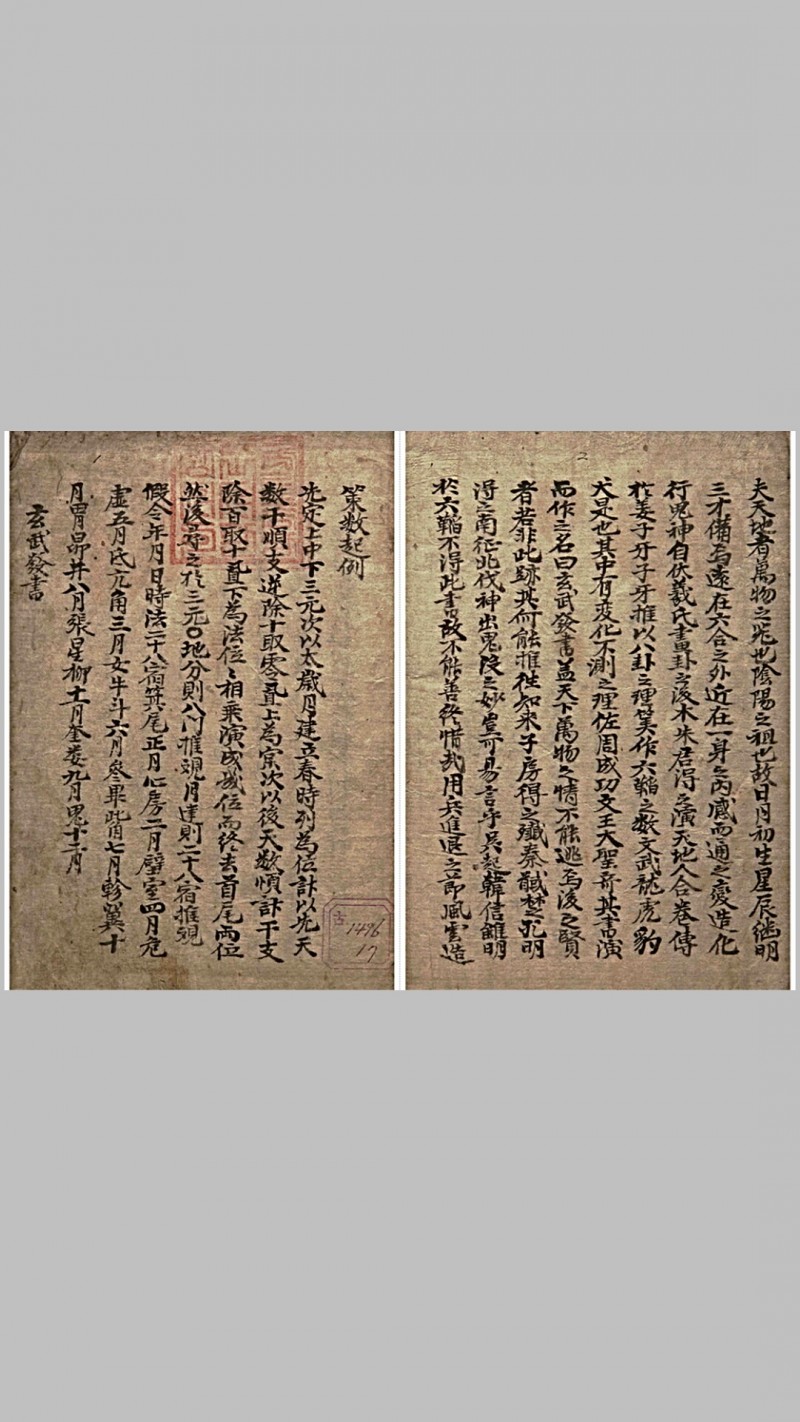 策數起例
先定上中下三元次以太歲月建立春時列為位計以先天
数干順支逆除十取零置上為宗次以後天数順計干支
除百取十置下為法位〻相乘演成幾位而終去首尾兩位
然後尋之於三元〇地分則八门推覌月建則二十八宿推覌
假令年月日時法二十八宿箕尾正月心房二月壁室四月危
虛五月氐亢角三月女牛斗六月參畢觜七月軫翼十
月胃昴井八月張星柳十一月奎婁九月鬼十二月
玄武發書
1
1496
17
2
夫天地者萬物之兆也陰陽之祖也故日月初生星辰継明
三才備焉遠在六合之外近在一身之內感而通之變造化
行鬼神自伏羲氏畫卦之後木朱君得之演天地人合卷傳
於姜子牙子牙推以八卦之理筭作六韜之數文武龍虎豹
犬是也其中有变化不測之理佐周成功文王大聖奇其書演
而作之名曰玄武發書盖天下萬物之情不能逃焉後之賢
者若非此跡其何能推往知来子房得之殲秦馘楚孔明
得之南征北伐神出鬼沒之妙豈可易言乎吳起韓信雖明
於六韜不得此書故不能善終惜哉用兵進退之立即風雲造